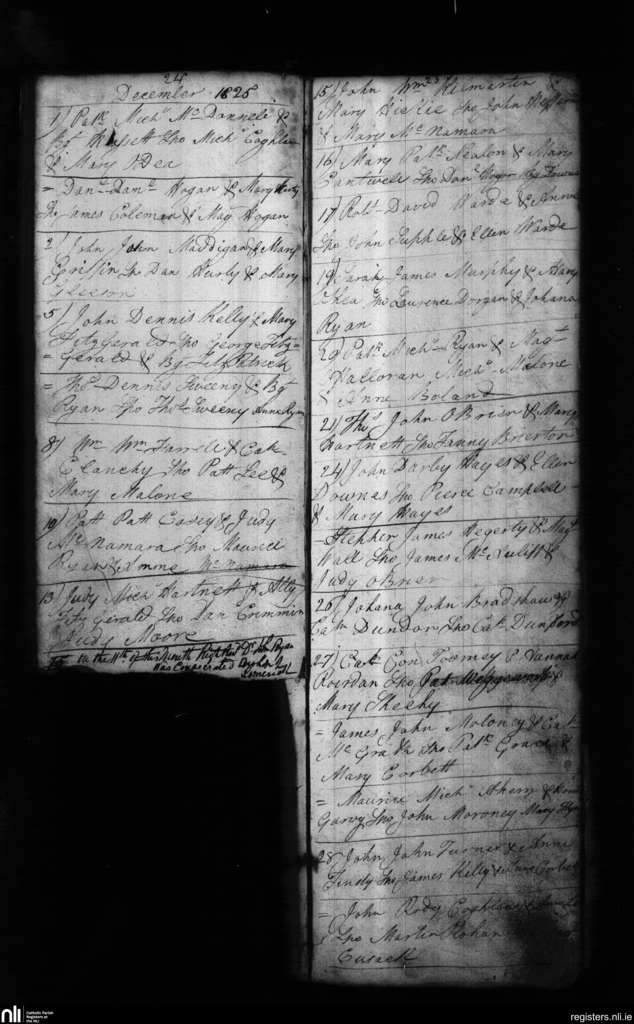 24
December 1825
1) Patk Michl Mc Donnell &
By Hassett Spo Michl Coghlan
& Mary O Dea
= Danl Danl Hogan & Mary
James Coleman & Mag Hogan
2) John John Maddigan & Mary
Griffin Spo Dan Hurly & Mary
Gleeson
5) John Dennis Kelly & Mary
Fitzgerald Spo George Fitz-
= gerald & By FitzPatrick
= Thos Dennis Sweeny & By
Ryan Spo Thos Sweeny Anne Ryan
8) Wm Wm Farrell & Cath
Clanchy Spo Patt Lee &
Mary Malone
10) Patt Patt Casey & Judy
Mc Namara Spo Maurice
Ryan & Mc Namara
13) Judy Michl Hartnett &
Fitzgerald Spo Danl Crimmin
Judy Moore
on the 11th of this Month Right Revd Dr Ryan
Was Consecrated Bishop of
Limerick
15) John Wm Kilmartin &
Mary Hickie Spo John
& Mary Mc Namara
16) Mary Patk Nealon & Mary
Cantwell Spo Danl
17) Robt David Warde & Anne
Spo John Supple & Ellen Warde
19) Sarah James Murphy & Mary
Shea Spo Laurence Dorgan & Johana
Ryan
20) Patk Michl Ryan & Magt
Halloran Michl Malone
& Anne Boland
21) Thos John OBrien & Mary
Hartnett Spo Fanny Brerton
24) John Darby Hayes & Ellen
Downes Spo Pierce Campbell
& Mary Hayes
Stephen James Hegerty & Magt
Wall Spo James &
Judy OBrien
26) Johana John Bradshaw &
Cath Dundon Spo Cath Dunford
27) Cath Con Toomey & Hannah
Riordan Spo Pat &
Mary Sheehy
= James John Moloney & Cath
Mc Grath Spo Patk Grace &
Mary Corbett
= Maurice Michl Ahern &
Garvy Spo John Moroney Mary
28) John John Turner & Anne
Spo James Kelly &
= John Rody Coghlan &
Spo Martin Kohan
Cusack
nli
Catholic Parish
Registers at
the NLI
registers.nli.ie